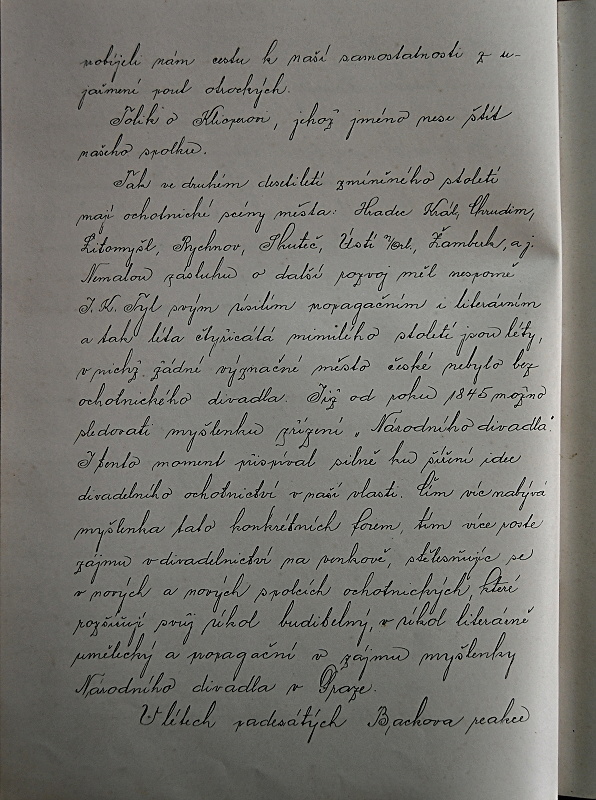 probíjeli nám cestu k naší samostatnosti z u-
jařmení pout otrockých.
Tolik o Klicperovi, jehož jméno nese štít
našeho spolku.
Tak ve druhém desetiletí zmíněného století
mají ochotnické scény města: Hradec Král, Chrudim,
Litomyšl, Rychnov, Skuteč, Ústí n/Orl., Žamberk, a j.
Nemalou zásluhu o další rozvoj měl nesporně
J. K. Tyl svým úsilím propagačním i literárním
a tak léta čtyřicátá minulého století jsou léty,
v nichž žádné význačné město české nebylo bez
ochotnického divadla. Již od roku 1845 možno
sledovati myšlenku zřízení „Národního divadla".
I tento moment přispíval silně ku šíření idee
divadelního ochotnictví v naší vlasti. Čím víc nabývá
myšlenka tato konkrétních forem, tím více roste
zájmu v divadelnictví na venkově, stělesňujíc se
v nových a nových spolcích ochotnických, které
rozšiřují svůj úkol buditelný, v úkol literárně
umělecký a propagační v zájmu myšlenky
Národního divadla v Praze.
V létech padesátých Bachova reakce